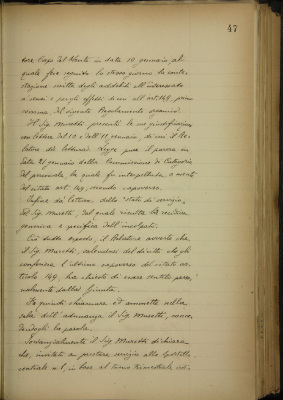 47
tore Capo del Reparto in data 19 gennaio, al
quale fece seguito lo stesso giorno la conte-
stazione scritta degli addebiti all'interessato
a sensi e per gli effetti di cui all'art. 149, primo
comma, del vigente Regolamento organico.
Il Sig. Moretti presentò le sue giustificazioni
con lettere del 20 e dell' gennaio, di cui il Re-
latore dà lettura. Legge pure il parere in
data 21 gennaio della Commissione di Categoria
del personale, la quale fu interpellata a mente
del citato art. 149, secondo capoverso.
Infine dà lettura dello "stato di servizio"
del Sig. Moretti, dal quale risulta la
generica e specifica dell'incolpato.
Ciò detto esposto, il Relatore avverte che
il Sig. Moretti, valendosi del diritto che gli
conferisce l'ultimo capoverso del citato ar-
ticolo 149, ha chiesto di essere sentito perso-
nalmente dalla Giunta.
Fa quindi chiamare ed ammette nella
sala dell'adunanza il Sig. Moretti,
dandogli la parola.
Sostanzialmente il Sig. Moretti dichiara
che, invitato a prestare servizio allo Spedale
n. 1, in base al turno trimestrale